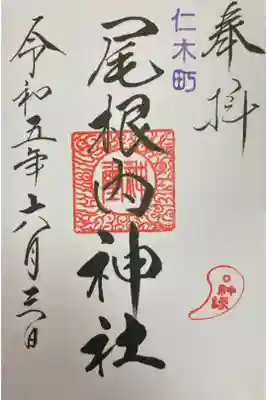 奉拝
仁木町
尾根内神社
令和五年六月三日